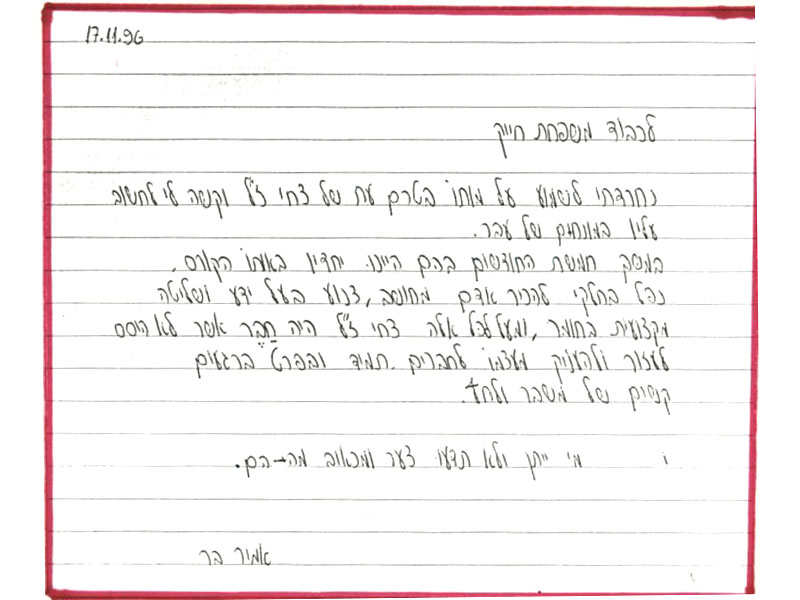 17.11.96
לכבוד משפחת חייק
נחרדתי לשמוע על מותו בטרם עת של צחי ז"ל וקשה לי לחשוב
עליו במונחים של עבר.
במשך חמשת החודשים בהם היינו יחדיו באותו הקורס,
נפל בחלקי להכיר אדם מחושב, צנוע בעל ידע ושליטה
מקצועית בחומר, ומעל לכל אלה צחי ז"ל היה חָבֵר אשר לא היסס
לעזור ולהעניק מעצמו לחברים. תמיד ובפרט ברגעים
קשים של משבר ולחץ.
מי ייתן ולא תדעו צער ומכאוב מה-הם.
אמיר בר